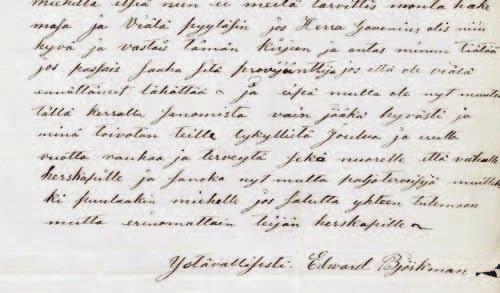 michella eipä niin ee meitä tarvittis monta hake
masa ja Vielä pyytäsin jos Herra Govenius olis niin
hyvä ja vastais tämän kirjen ja antas minun tiätää
jos passais saaha sitä provijänttijä jos että ole vielä
ennättäneet lähättää ja eipä mulla ole nyt muuta
tällä kerralla sanomista vain jääkä hyvästi ja
minä toivotan teille lykyllistä Joulua ja uutta
vuotta rauhaa ja terveytä sekä nuorelle että vanhalle
herskapille ja sanoka nyt multa paljoterveisijä muille
ki puulaakin miehelle jos salutta yhteen tulemaan
mutta erinomattain teijän herskapille
Ystävallisesti. Edward Björkman